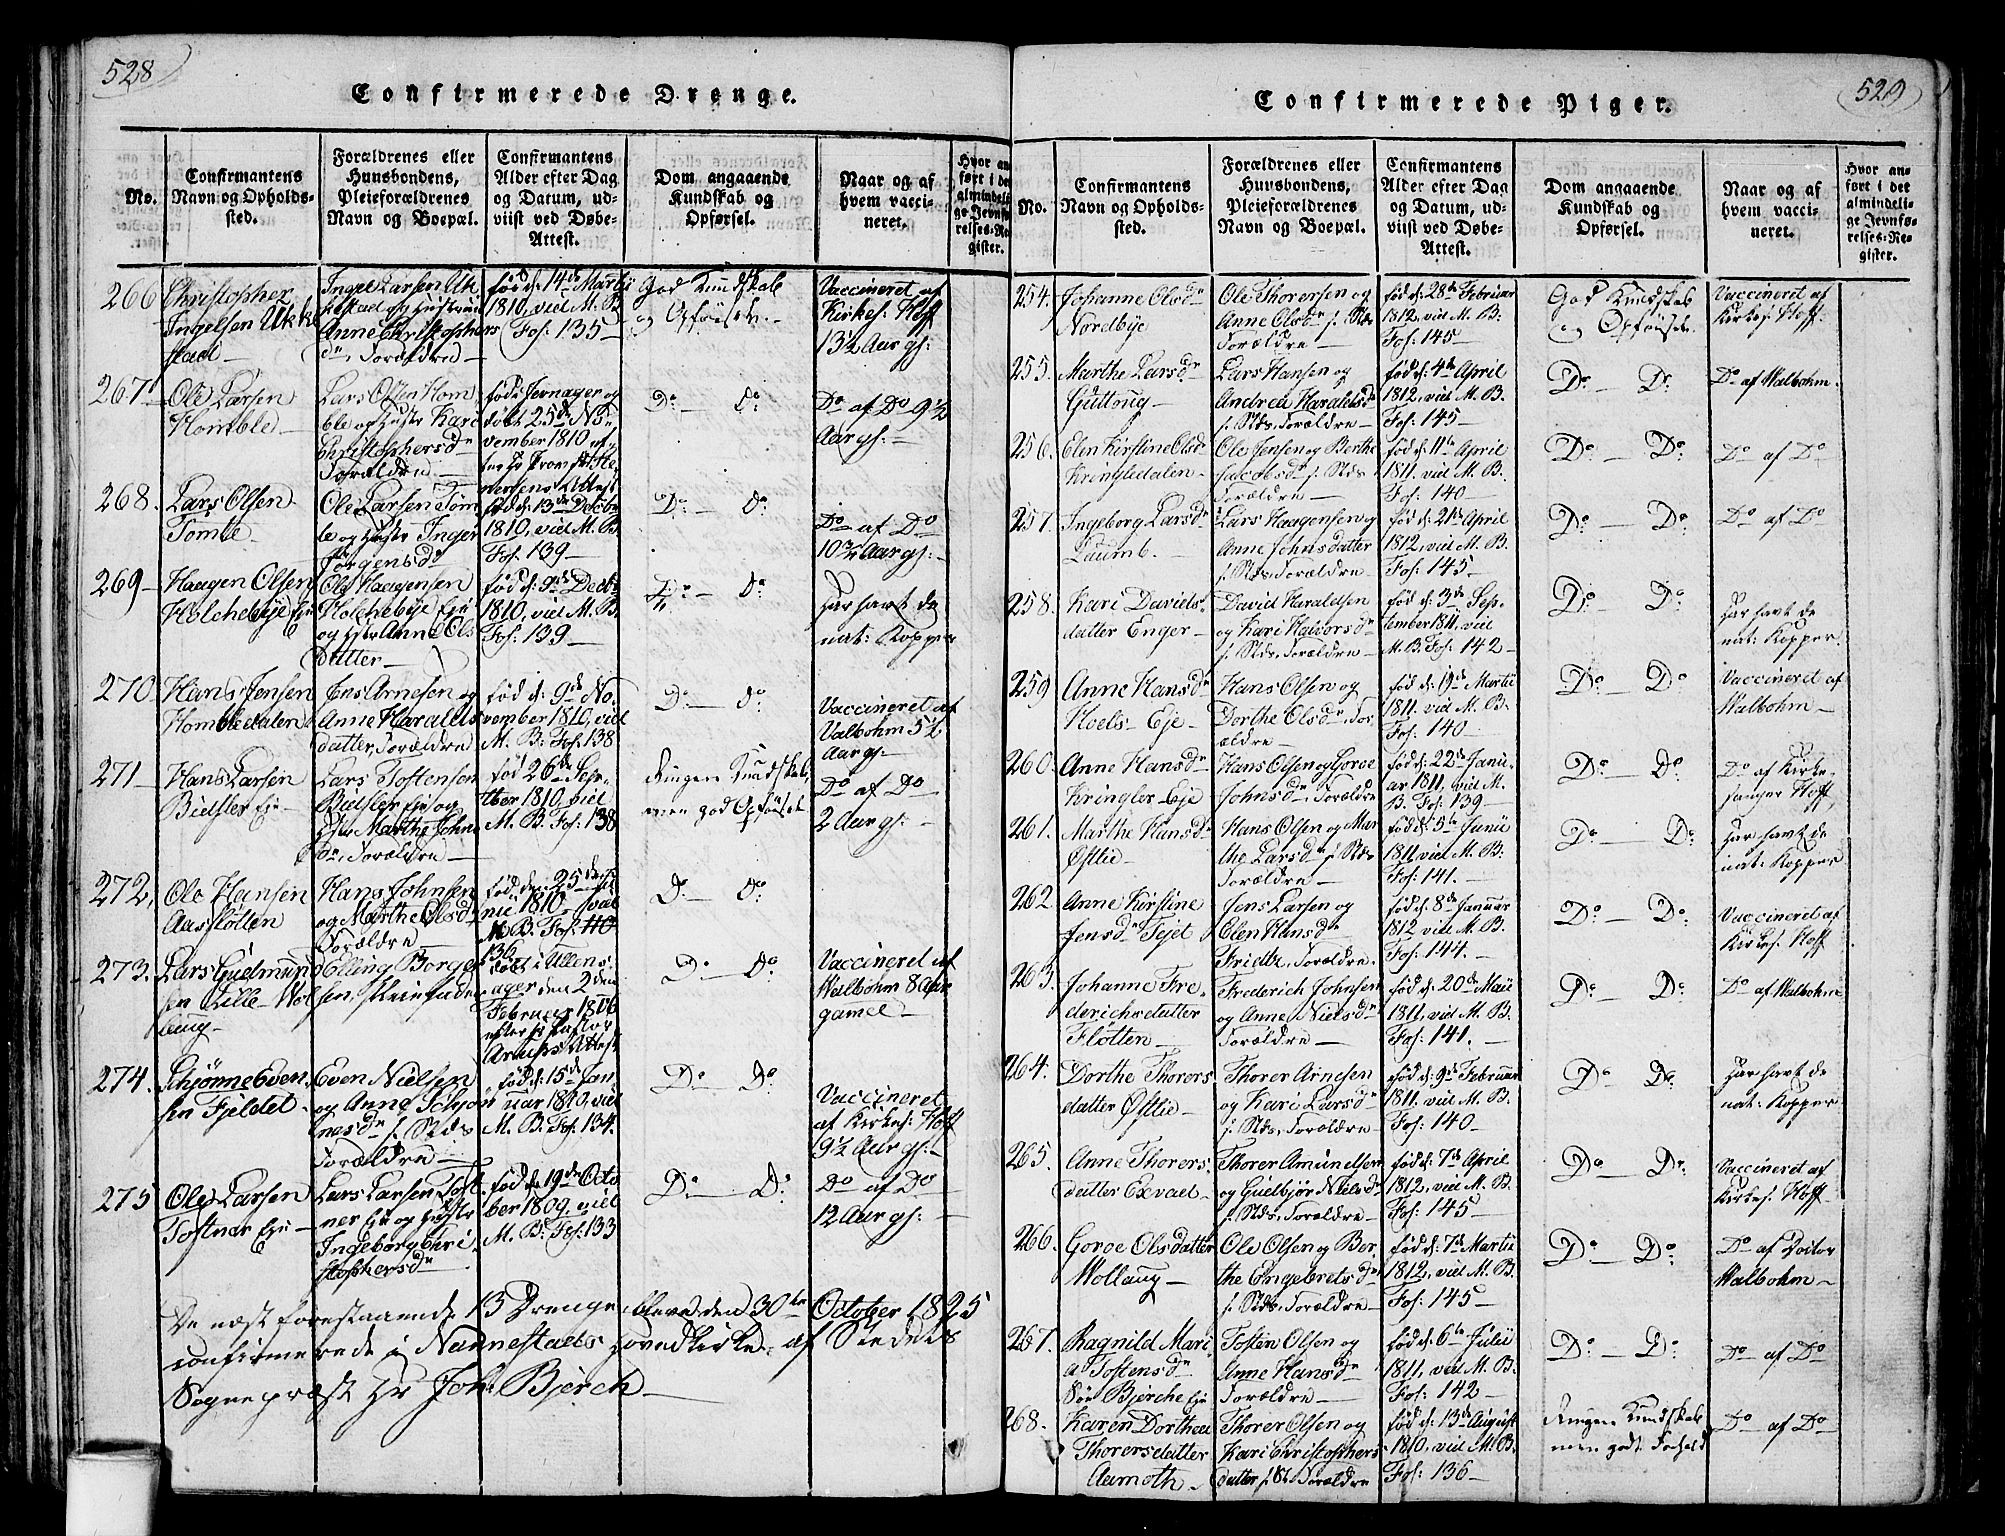 528
Confirmerede Drenge.
No.
Confirmantens
Navn og Opholds-
sted.
Forældrenes eller
Huusbondens,
Pleieforældrenes
Navn og Boepæl.
Confirmantens
Alder efter Dag
og Datum, ud-
viist ved Døbe-
Attest.
Dom angaaende
Kundskab og
Opførsel.
Naar og af
hvem vacci-
neret.
Hvor an-
ført i det
almindeli-
ge Jevnfø-
relses-Re-
gister.
266
Christopher
Ingelsen Ukke
stad
Ingel Larsen Uk
kestad og Hustrue
Anne Christophers
dn, Forældre
fød d: 14de Martii
1810, viid M. B.
Fol: 135
God Kundskab
og Opførsel.
Vaccineret af
Kirkes: Hoff
13½ Aar gl:
267
Ole Larsen
Homble
Lars Olsen Hom
ble og Hustr Kari
Christophersdn
Forældre
døbt 25de No
vember 1810
Do — Do
Do af Do 9½
Aar gl:
268.
Lars Olsen
Tømte
Ole Larsen Tøm
te og Hustr Inger
Jørgensdn
fød d: 13de Octobr
1810, viid M. B.
Fol: 139
Do — Do
Do af Do
10¾ Aar gl:
269
Haagen Olsen
Holchebye Eje
Ole Haagensen
Holchebye Eje
og Hstr Anne Ols
Datter
fød d: 9de Decbr
1810, viid M. B.
Fol: 139
Do — Do
Har havt de
nat: Kopper
270
Hans Jensen
Hombledalen
Jens Arnesen og
Anne Haralds
datter, Forældre
fød d: 9de No
vember 1810, viid
M. B: Fol: 138
Do — Do
Vaccineret af
Valbohm 5½
Aar gl:
271
Hans Larsen
Bielsler Eje
Lars Tostensen
Bielsler Eje og
Hstr Marthe Johns
dn, Forældre
fød 26de Sep-
tber 1810, viid
M. B. Fol: 138
Ringere Kundskab,
men god Opførsel
Do af Do
2 Aar gl:
272,
Ole Hansen
Aasfløtten
Hans Johnsen
og Marthe Olsd
Forældre
fød d: 25de Ju
nii 1810, viid
M. B. Fol: 110
136
Do — Do
273.
Lars Guelmund
sen Lille Wol
laug
Elling Borge
sen,
døbt i Ullens-
ager den 2den
Februar 1806
Do — Do
Vaccineret af
Walbohm 8 Aar
gamel
274.
Schjønne Even
sen Fjeldet
Even Nielsen
og Anne Schjøn
nesdn s. Stds
Forældre
fød d: 15de Jan
uar 1810, viid
M. B. Fol: 134.
Do — Do
Vaccineret
af Kirkes: Hoff
9½ Aar gl:
275
Ole Larsen
Tostner Eje
Lars Larsen Tost
ner Eje og Hustr
Ingeborg Chri
stophersdn
fød d: 19de Octo
ber 1809, viid
M. B: Fol: 133
Do — Do
Do af Do
12 Aar gl:
De næst forestaaende 13 Drenge bleve den 30te October 1825
confirmerede i Nannestads Hovedkirke, af Stedets
Sognepræst Hr Joh: Bjerch
529
Confirmerede Piger.
No.
Confirmantens
Navn og Opholds-
sted.
Forældrenes eller
Huusbondens,
Pleieforældrenes
Navn og Boepæl.
Confirmantens
Alder efter Dag
og Datum, ud-
viist ved Døbe-
Attest.
Dom angaaende
Kundskab og
Opførsel.
Naar og af
hvem vacci-
neret.
Hvor an-
ført i det
almindeli-
ge Jevnfø-
relses-Re-
gister.
254.
Johanne Olsdn
Nordbye
Ole Thorersen og
Anne Olsdn s. Stds
Forældre
fød d: 28de Februar
1812, viid M. B:
Fol: 145
God Kundskab
og Opførsel.
Vaccineret af
Kirkes: Hoff.
255.
Marthe Larsdn
Guttoug
Lars Hansen og
Andrea Haraldsdn
s. Stds, Forældre
fød d: 4de April
1812, viid M. B.
Fol: 145
Do — Do
Do af Walbohm.
256.
Elen Kirstine Olsd
Kringledalen
Ole Jensen og Berthe
Jacobsdn s. Stds
Forældre
fød d: 11te April
1811, viid M. B.
Fol: 140
Do — Do
Do af Do
257.
Ingeborg Larsdn
Laumb.
Lars Haagensen og
Anne Johnsdatter
s. Stds, Forældre
fød d: 21de April
1812, viid M. B.
Fol: 145
Do — Do
Do af Do
258.
Kari Davids-
datter Enger
David Haraldsen
og Kari Halvorsdn
s. Stds, Forældre
fød d: 3de Sep-
tember 1811, viid
M. B. Fol: 142
Do — Do
Har havt de
nat: Kopper.
259
Anne Hansdn
Hoels-Eje
Hans Olsen og
Dorthe Olsdn, For
ældre
fød d: 19de Martii
1811, viid M. B.
Fol: 140
Do — Do
Vaccineret af
Walbohm
260.
Anne Hansdn
Kringler-Eje
Hans Olsen og Goroe
Johnsdn, Forældre
fød d: 22de Janu
ar 1811, viid M.
B. Fol: 139
Do — Do
Do af Kirke-
sanger Hoff,
261.
Marthe Hansdn
Østlie
Hans Olsen og Mar
the Larsdn s. Stds
Forældre
fød d: 5te Junii
1811, viid M. B:
Fol: 141.
Do — Do
Har havt de
nat: Kopper
262.
Anne Kirstine
Jensdn Tejet
Jens Larsen og
Elen Hansdn
Forældre.
fød d: 8de Januar
1812 viid M. B.
Fol: 144.
Do — Do
Vaccineret af
Kirkes. Hoff
263.
Johanne Fre-
derichsdatter
Fløtten
Frederich Johnsen
og Anne Nielsdn
Forældre
fød d: 20de Maii
1811, viid M. B.
Fol: 141.
Do — Do
Do af Walbohm
264.
Dorthe Thorers
datter Østlie
Thorer Arnesen
og Kari Larsdn
s. Stds, Forældre
fød d: 9de Februar
1811, viid M. B.
Fol: 140
Do — Do
Har havt de
nat: Kopper
265.
Anne Thorers-
datter Exvael
Thorer Amundsen
og Guelbjør Nielsdn
s. Stds, Forældre
fød d: 7de April
1812, viid M. B.
Fol: 145
Do — Do
Vaccineret af
Kirkes. Hoff
266.
Goroe Olsdatter
Wollaug
Ole Olsen og Ber
the Engebretsdn
s. Stds, Forældre
fød d: 7de Martii
1812, viid M. B.
Fol: 145
Do — Do
Do af Doctor
Walbohm
267.
Ragnild Mari-
a Tostensdn
Søe Bjerche Eje
Tosten Olsen og
Anne Hansdn
Forældre
fød d: 6te Julii
1811, viid M. B.
Fol: 142
Do — Do
Do af Do
268.
Karen Dorthea
Thorersdatter
Aamoth
Thorer Olsen og
Kari Christophers
datter s. St. Forældre
fød d: 13de August
1810, viid M. B.
Fol: 136
Ringere Kundskab
men godt Forhold
Do af Do